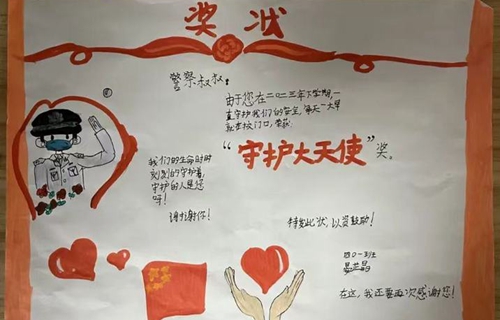 奖状
警察叔叔：
由于您在二〇二三年下学期，一
直守护我们的安全，每天一大早
就在校门口，荣获：
“守护大天使”奖。
我们的生命时时
刻刻的守护着，
守护的人是您
呀！
谢谢你！
特发此状，以资鼓励！
四〇一班
在这，我还要再次感谢您！